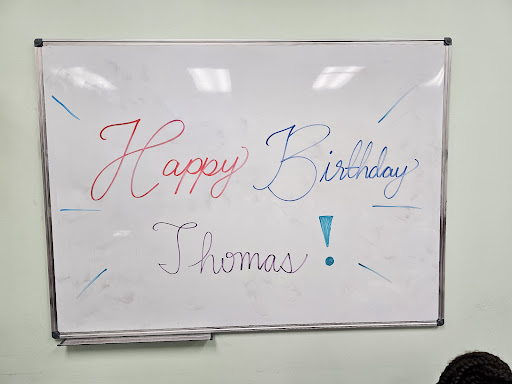 Happy Birthday
Thomas!